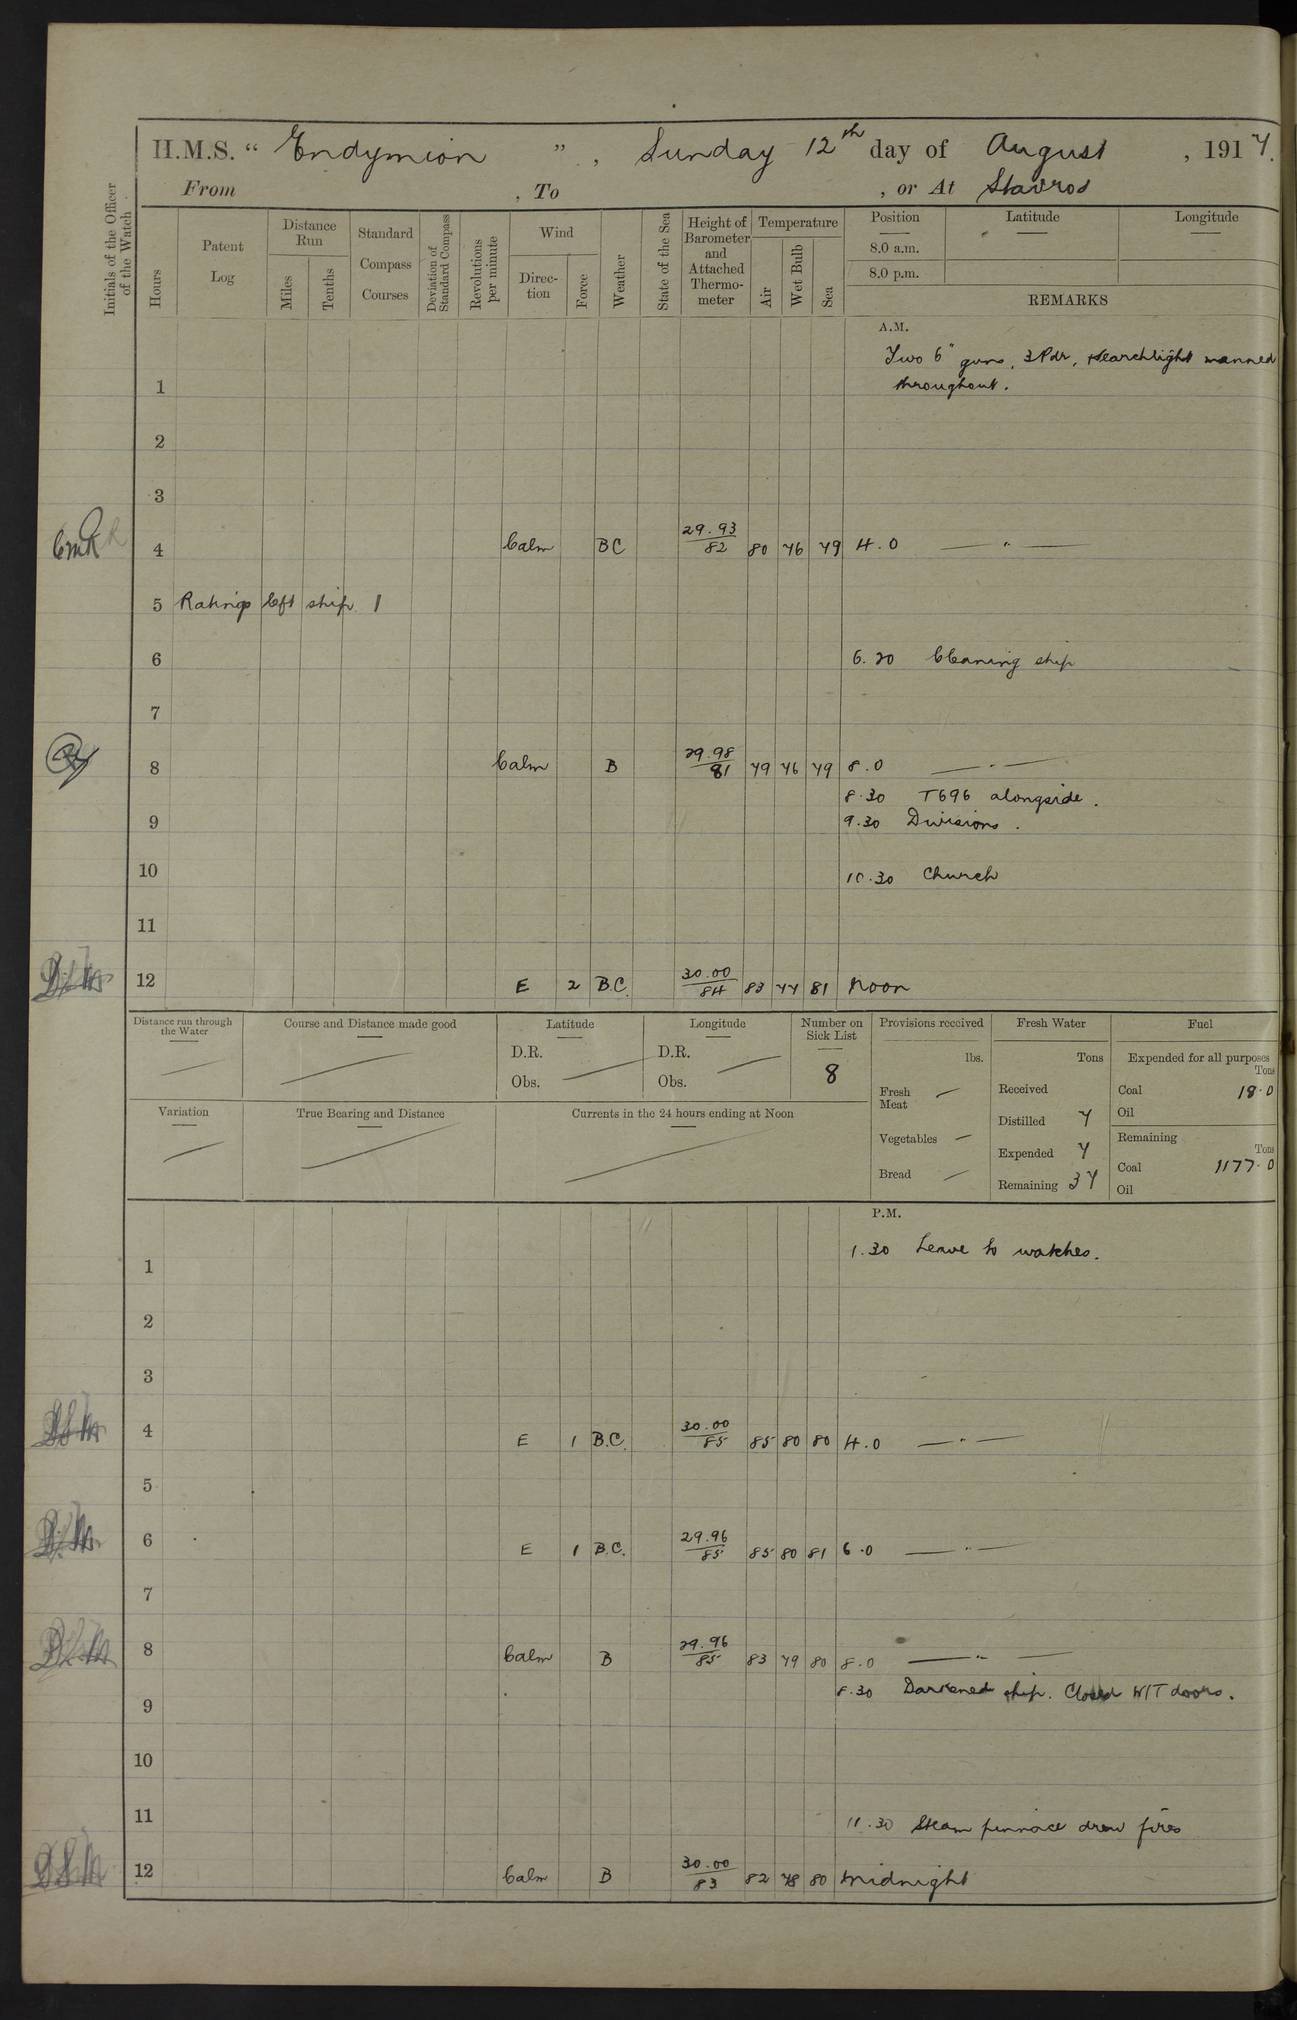 H.M.S. “ Endymion ” , Sunday 12th day of August , 1917.
From , To , or At Stavros
Initials of the Officer of the Watch
Hours
Patent Log
Distance Run
Miles
Tenths
Standard Compass Courses
Deviation of Standard Compass
Revolutions per minute
Wind
Direction
Force
Weather
State of the Sea
Height of Barometer and Attached Thermometer
Temperature
Air
Wet Bulb
Sea
Position Latitude Longitude
8.0 a.m.
8.0 p.m.
REMARKS
A.M.
Two 6" guns, 3 Pdr, searchlight manned
1 throughout.
2
3
4 Calm BC 29.93/82 80 76 79 4.0 — " —
5 Ratings left ship 1
6 6.20 Cleaning ship
7
8 Calm B 29.98/81 79 76 79 8.0 — " —
8.30 T696 alongside.
9 9.30 Divisions.
10 10.30 Church
11
12 E 2 B.C. 30.00/84 83 77 81 Noon
Distance run through the Water
Course and Distance made good
Latitude
D.R.
Obs.
Longitude
D.R.
Obs.
Number on Sick List
8
Variation
True Bearing and Distance
Currents in the 24 hours ending at Noon
Provisions received
lbs.
Fresh Meat —
Vegetables —
Bread —
Fresh Water
Tons
Received
Distilled 7
Expended 7
Remaining 37
Fuel
Expended for all purposes
Tons
Coal 18.0
Oil
Remaining
Tons
Coal 1177.0
Oil
P.M.
1.30 Leave to watches.
1
2
3
4 E 1 B.C. 30.00/85 85 80 80 4.0 — " —
5
6 E 1 B.C. 29.96/85 85 80 81 6.0 — " —
7
8 Calm B 29.96/85 83 79 80 8.0 — " —
8.30 Darkened ship. Closed W/T doors.
9
10
11 11.30 Steam pinnace drew fires
12 Calm B 30.00/83 82 78 80 Midnight